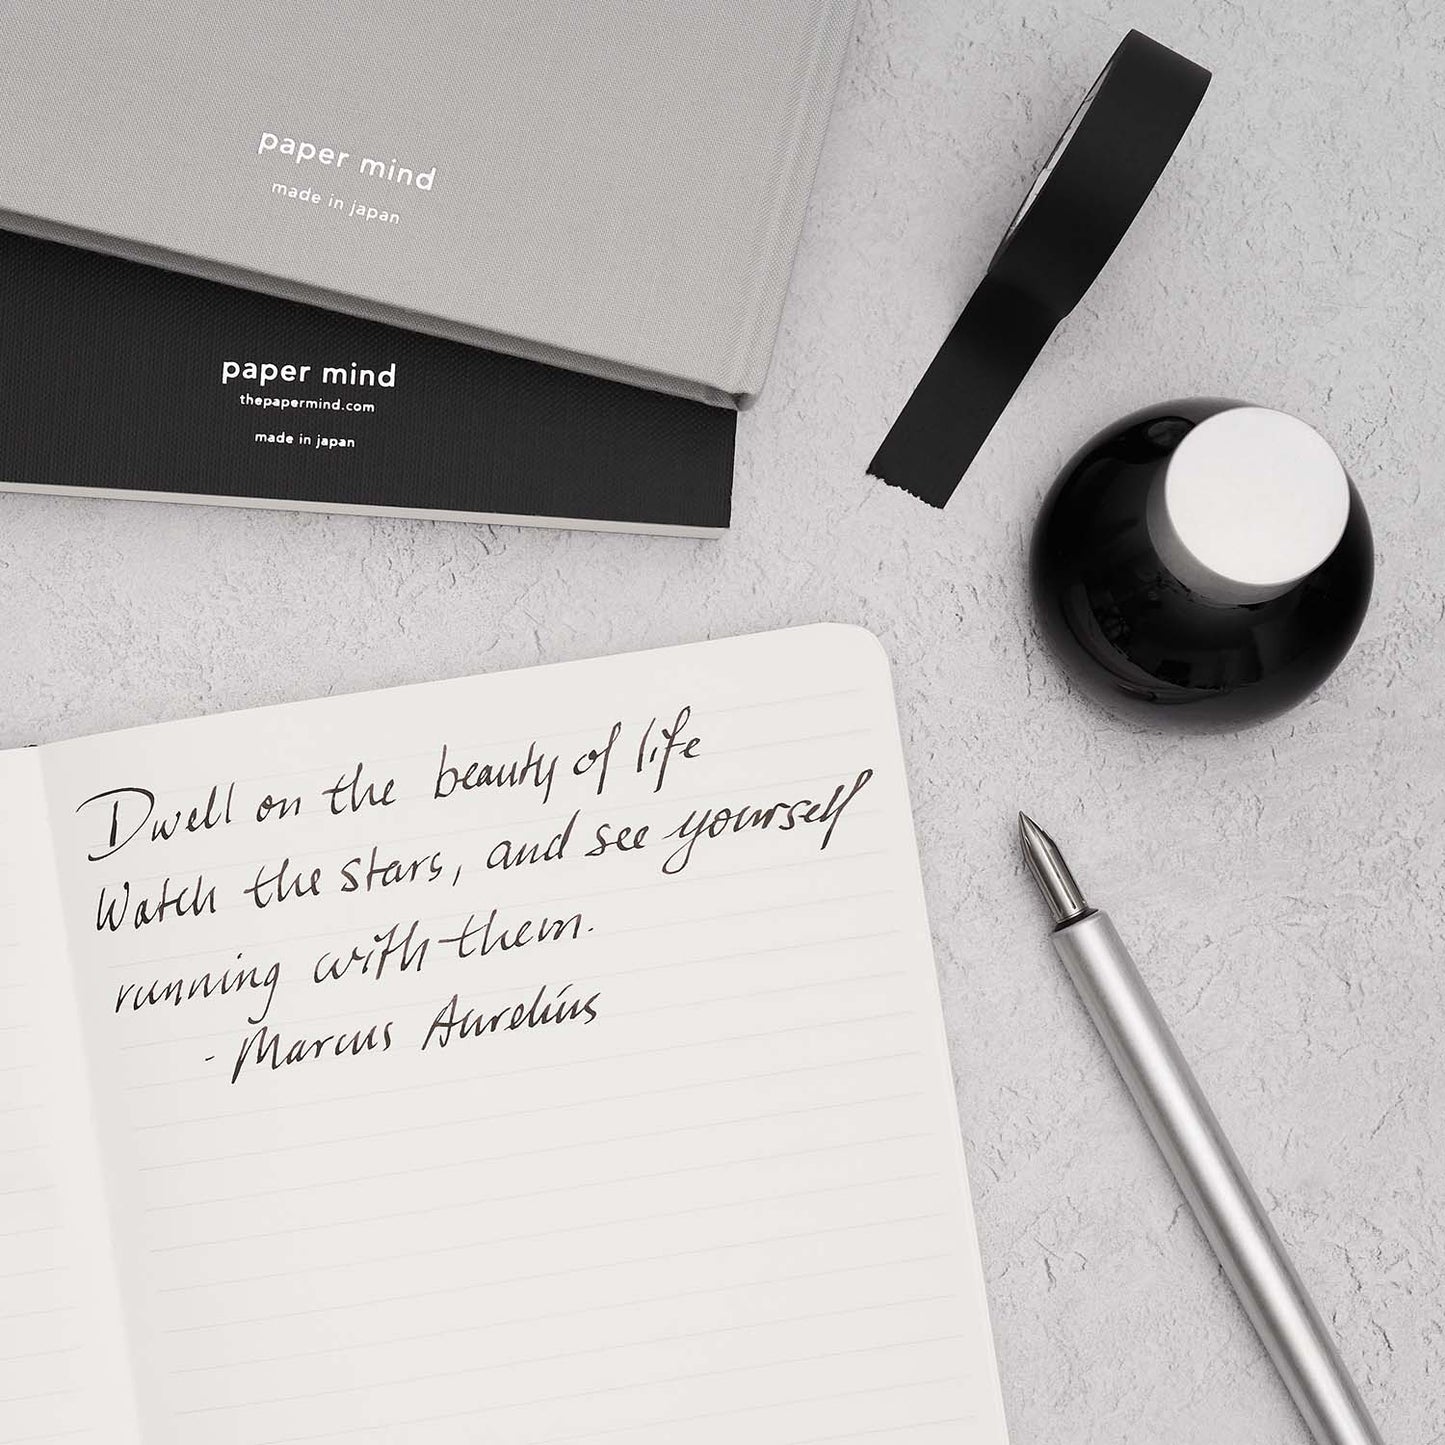 paper mind
made in japan
paper mind
thepapermind.com
made in japan
Dwell on the beauty of life
Watch the stars, and see yourself
running with them.
- Marcus Aurelius